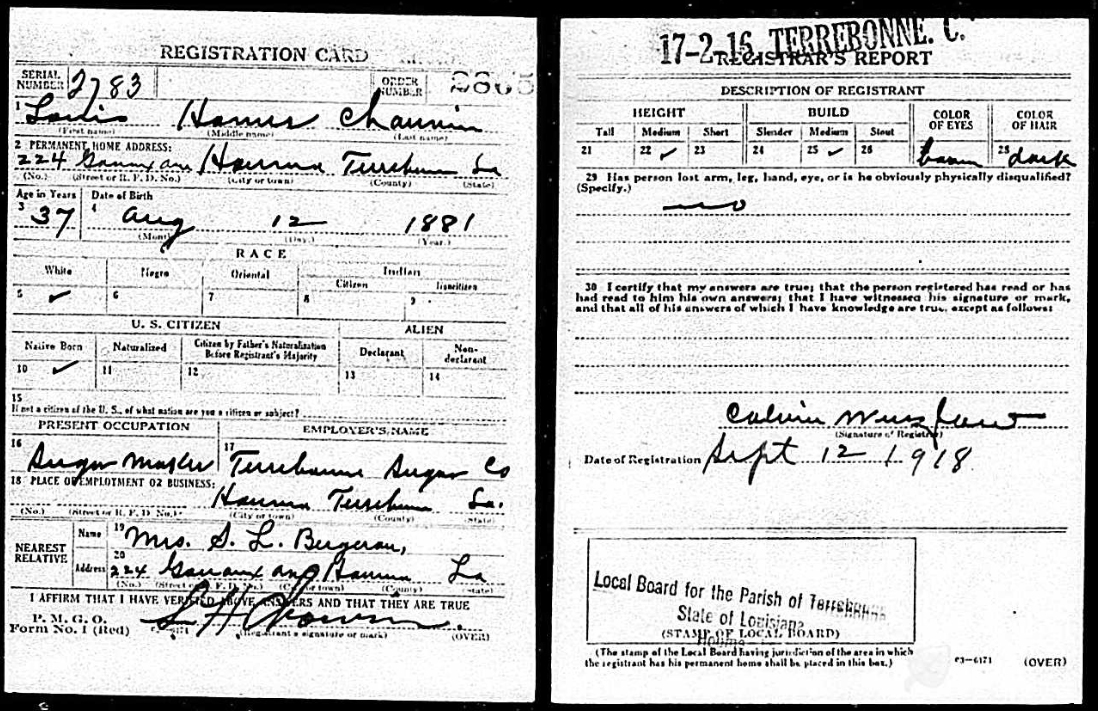 REGISTRATION CARD
SERIAL NUMBER 2783 ORDER NUMBER 2865
1 Louis Chauvin
(First name) (Middle name) (Last name)
2 PERMANENT HOME ADDRESS:
224 Houma Terrebonne La
(No.) (Street or R. F. D. No.) (City or town) (County) (State)
Age in Years Date of Birth
3 37 4 Aug 12 1881
(Month) (Day.) (Year.)
RACE
White Negro Oriental Indian
Citizen Noncitizen
5 ✓ 6 7 8 9
U. S. CITIZEN ALIEN
Native Born Naturalized Citizen by Father's Naturalization Before Registrant's Majority Declarant Non-declarant
10 ✓ 11 12 13 14
15
If not a citizen of the U. S., of what nation are you a citizen or subject?
PRESENT OCCUPATION EMPLOYER'S NAME
16 Sugar Maker 17 Terrebonne Sugar Co
18 PLACE OF EMPLOYMENT OR BUSINESS:
Houma Terrebonne La.
(No.) (Street or R. F. D. No.) (City or town) (County) (State)
NEAREST RELATIVE Name 19 Mrs. S. L. Bergeron,
Address 20 224 Houma La
(No.) (Street or R. F. D. No.) (City or town) (County) (State)
I AFFIRM THAT I HAVE VERIFIED ABOVE ANSWERS AND THAT THEY ARE TRUE
P. M. G. O.
Form No. 1 (Red) L H Chauvin.
(Registrant's signature or mark) (OVER)
17-2-16 TERREBONNE. C.
REGISTRAR'S REPORT
DESCRIPTION OF REGISTRANT
HEIGHT BUILD COLOR OF EYES COLOR OF HAIR
Tall Medium Short Slender Medium Stout
21 22 ✓ 23 24 25 ✓ 26 brown 28 dark
29 Has person lost arm, leg, hand, eye, or is he obviously physically disqualified?
(Specify.)
no
30 I certify that my answers are true; that the person registered has read or has
had read to him his own answers; that I have witnessed his signature or mark,
and that all of his answers of which I have knowledge are true, except as follows:
Calvin Wurzlow
(Signature of Registrar)
Date of Registration Sept 12 1918
Local Board for the Parish of Terrebonne
State of Louisiana
(STAMP OF LOCAL BOARD)
Houma
(The stamp of the Local Board having jurisdiction of the area in which
the registrant has his permanent home shall be placed in this box.)
03—6171 (OVER)